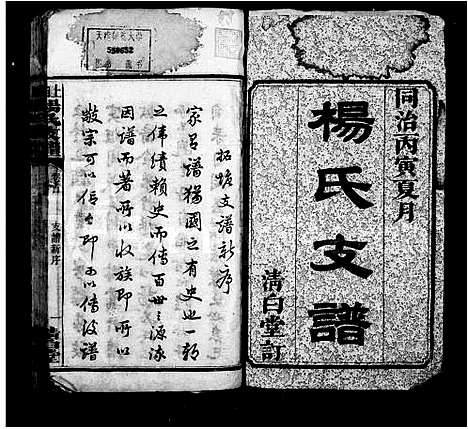 同治丙寅夏月
楊氏支譜
清白堂訂
拓塘支譜新序
家有譜猶國之有史也一朝
之偉績賴史而傳百世之源流
因譜而著所以收族即所以
敬宗可以信今即可以傳後譜
支譜新序
580652